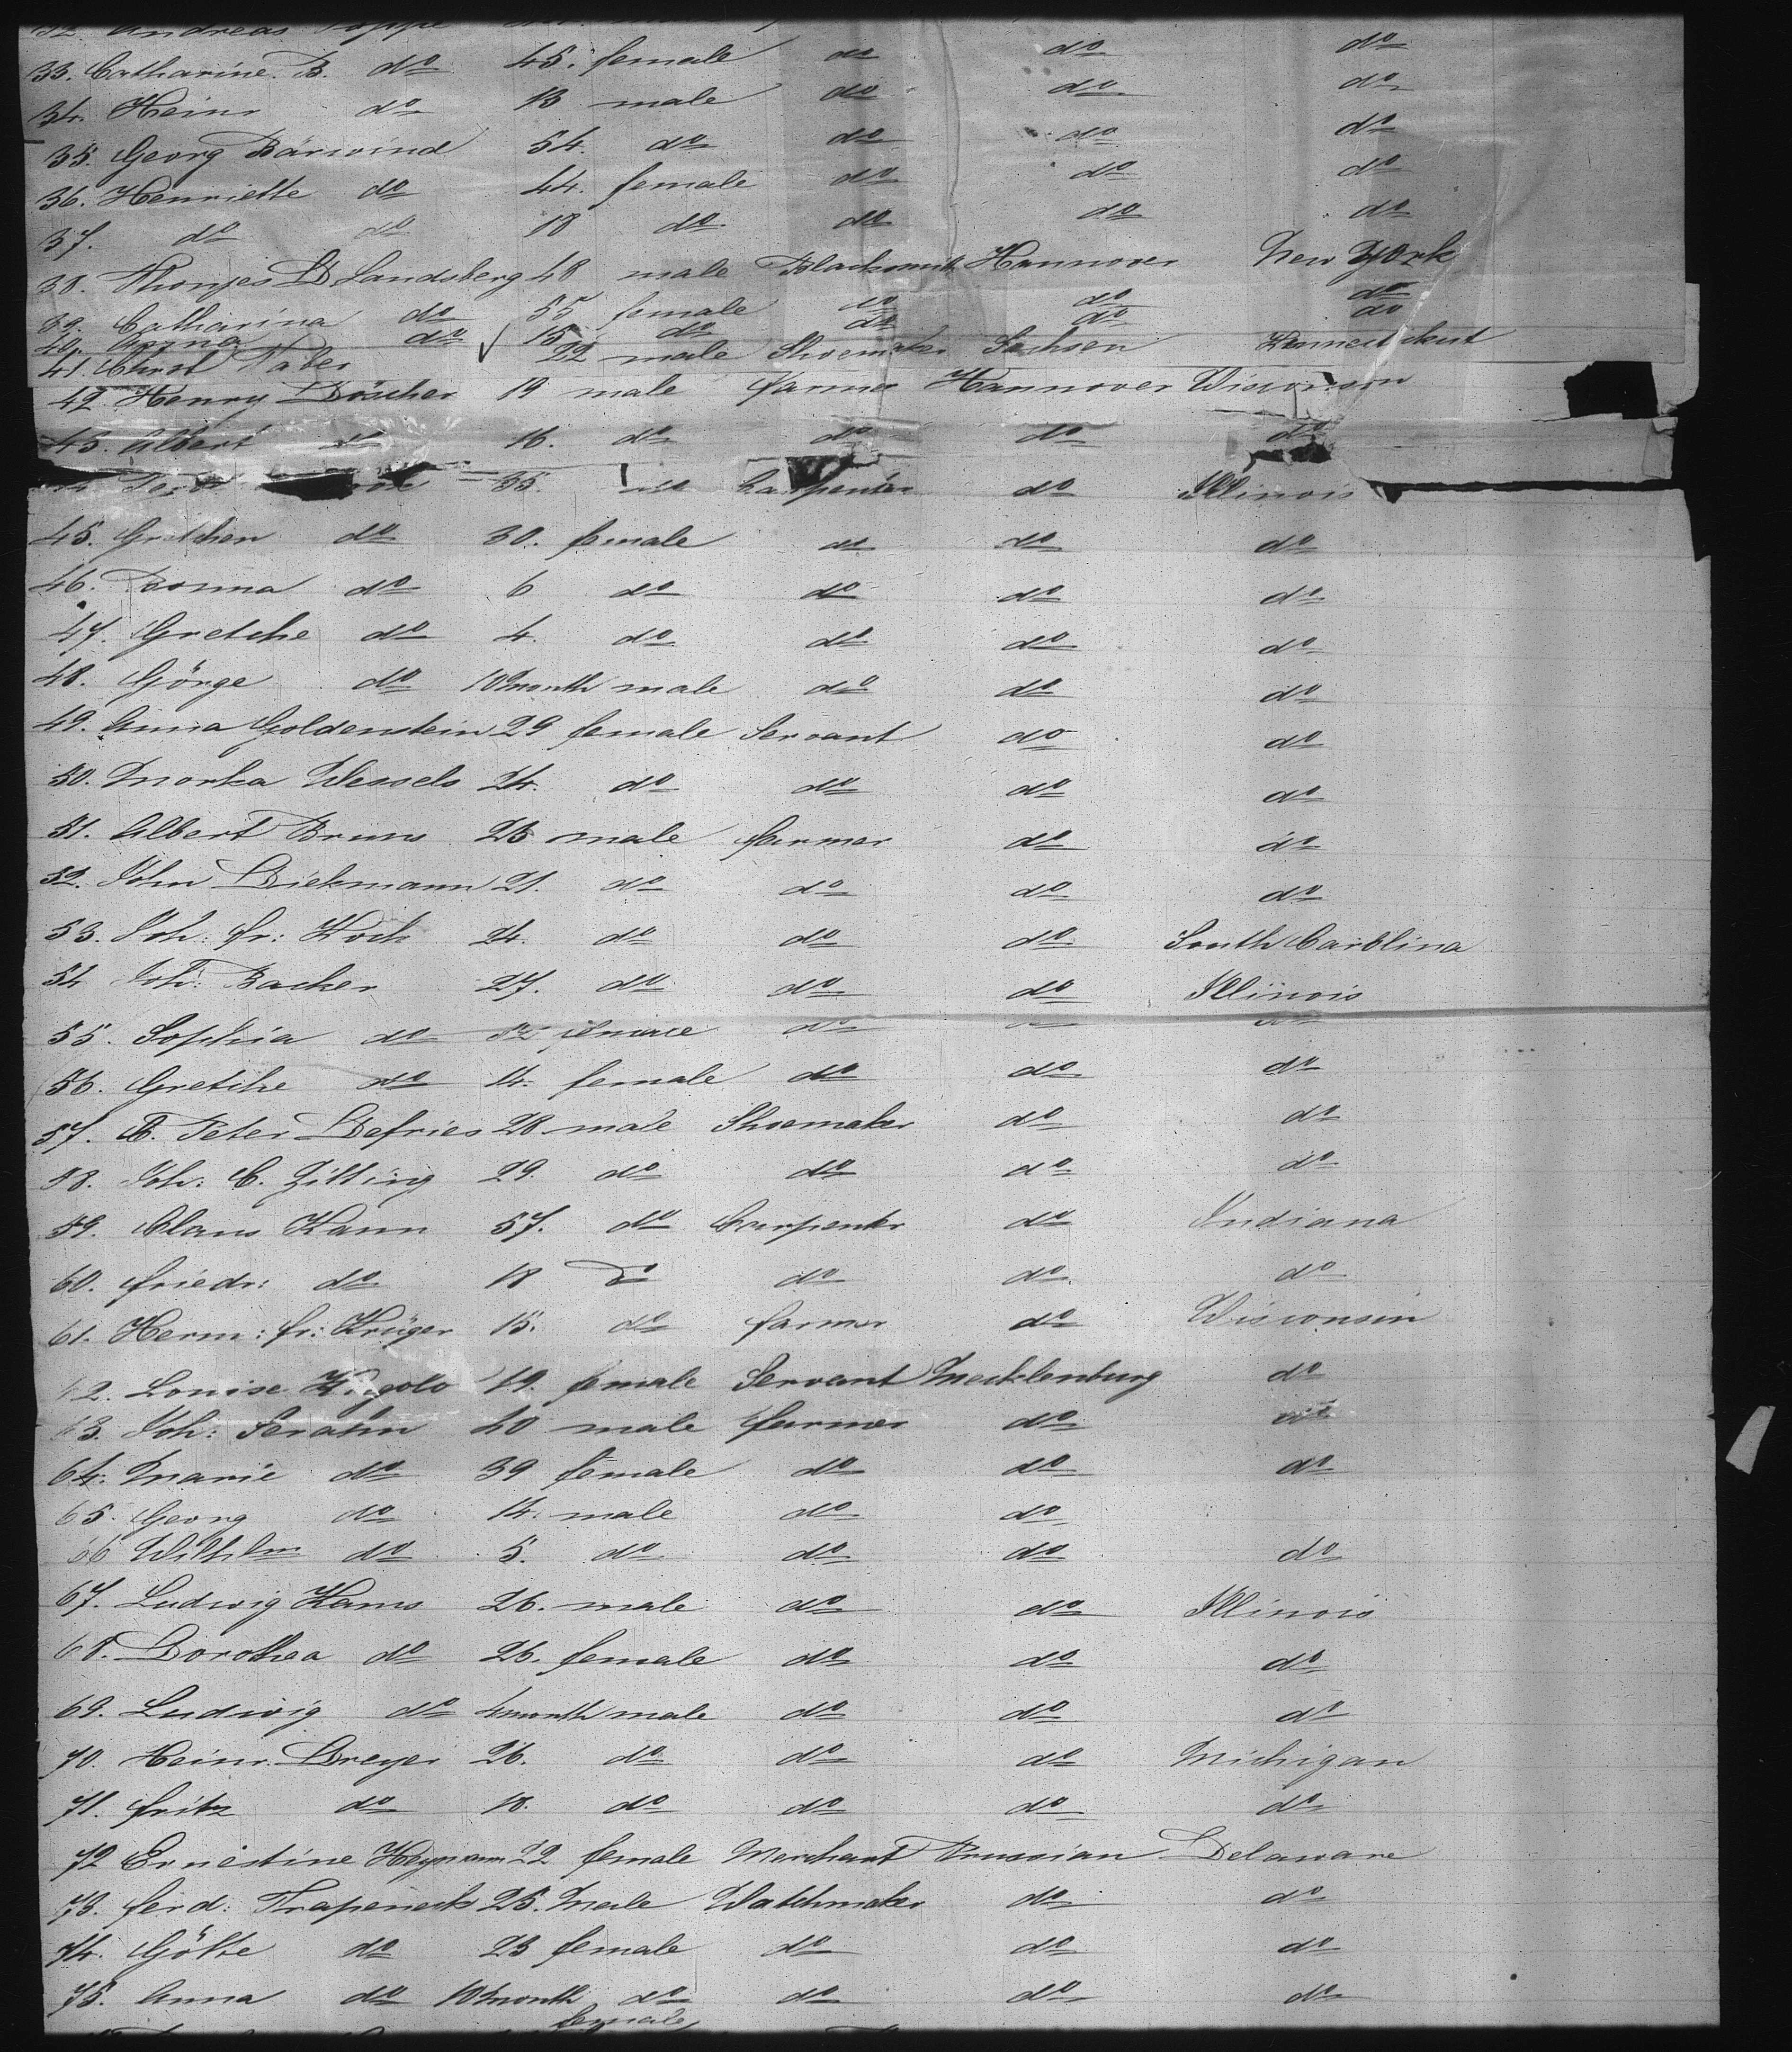 32. Andreas
33. Catharine. B. do 45. female do do do
34. Heinr do 13 male do do do
35. Georg Bärwind 54. do do do do
36. Henriette do 44. female do do do
37. do do 18 do do do do
38. Landsberg 48 male Blacksmith Hannover New York
39. Catharina do 55 female do do do
40. Anna do 15. do do do do
41. Christ Faber 22 male Shoemaker Sachsen
42. Henry Döscher 19 male farmer Hannover Wisconson
43. Albert do 16. do do do do
35. do Carpenter do Illinois
45. Gretchen do 30. female do do do
46. do 6 do do do do
47. Gretche do 4. do do do do
48. Görge do 10 month male do do do
49. Anna Goldenstein 29 female Servant do do
50. Morka Wessels 24. do do do do
51. Albert Bruns 23 male farmer do do
52. John Diekmann 21. do do do do
53. Joh: fr: Koch 24. do do do South Carolina
54 Joh: Backer 27. do do do Illinois
55. Sophia do female do do do
56. Gretche do 14. female do do do
57. Peter Defries 28 male Shoemaker do do
58. Joh: C. Zilling 29. do do do do
59. Claus Kann 57. do Carpenter do Indiana
60. friedr: do 18 do do do do
61. Herm: fr: Krüger 15. do farmer do Wisconsin
62. Louise 19. female Servant Mecklenburg do
63. Joh: 40 male farmer do do
64. Marie do 39 female do do do
65. Georg do 14. male do do
66 Wilhelm do 5. do do do do
67. Ludwig Hams 26. male do do Illinois
68. Dorothea do 26. female do do do
69. Ludwig do 4 month male do do do
70. Heinr. Dreyer 26. do do do Michigan
71. fritz do 18. do do do do
72 Ernestine Heymann 22 female Merchant Prussian Delaware
73. ferd: Trapeneck 25. Male Watchmaker do do
74. Götte do 23 female do do do
75. Anna do 10 month do do do do
female